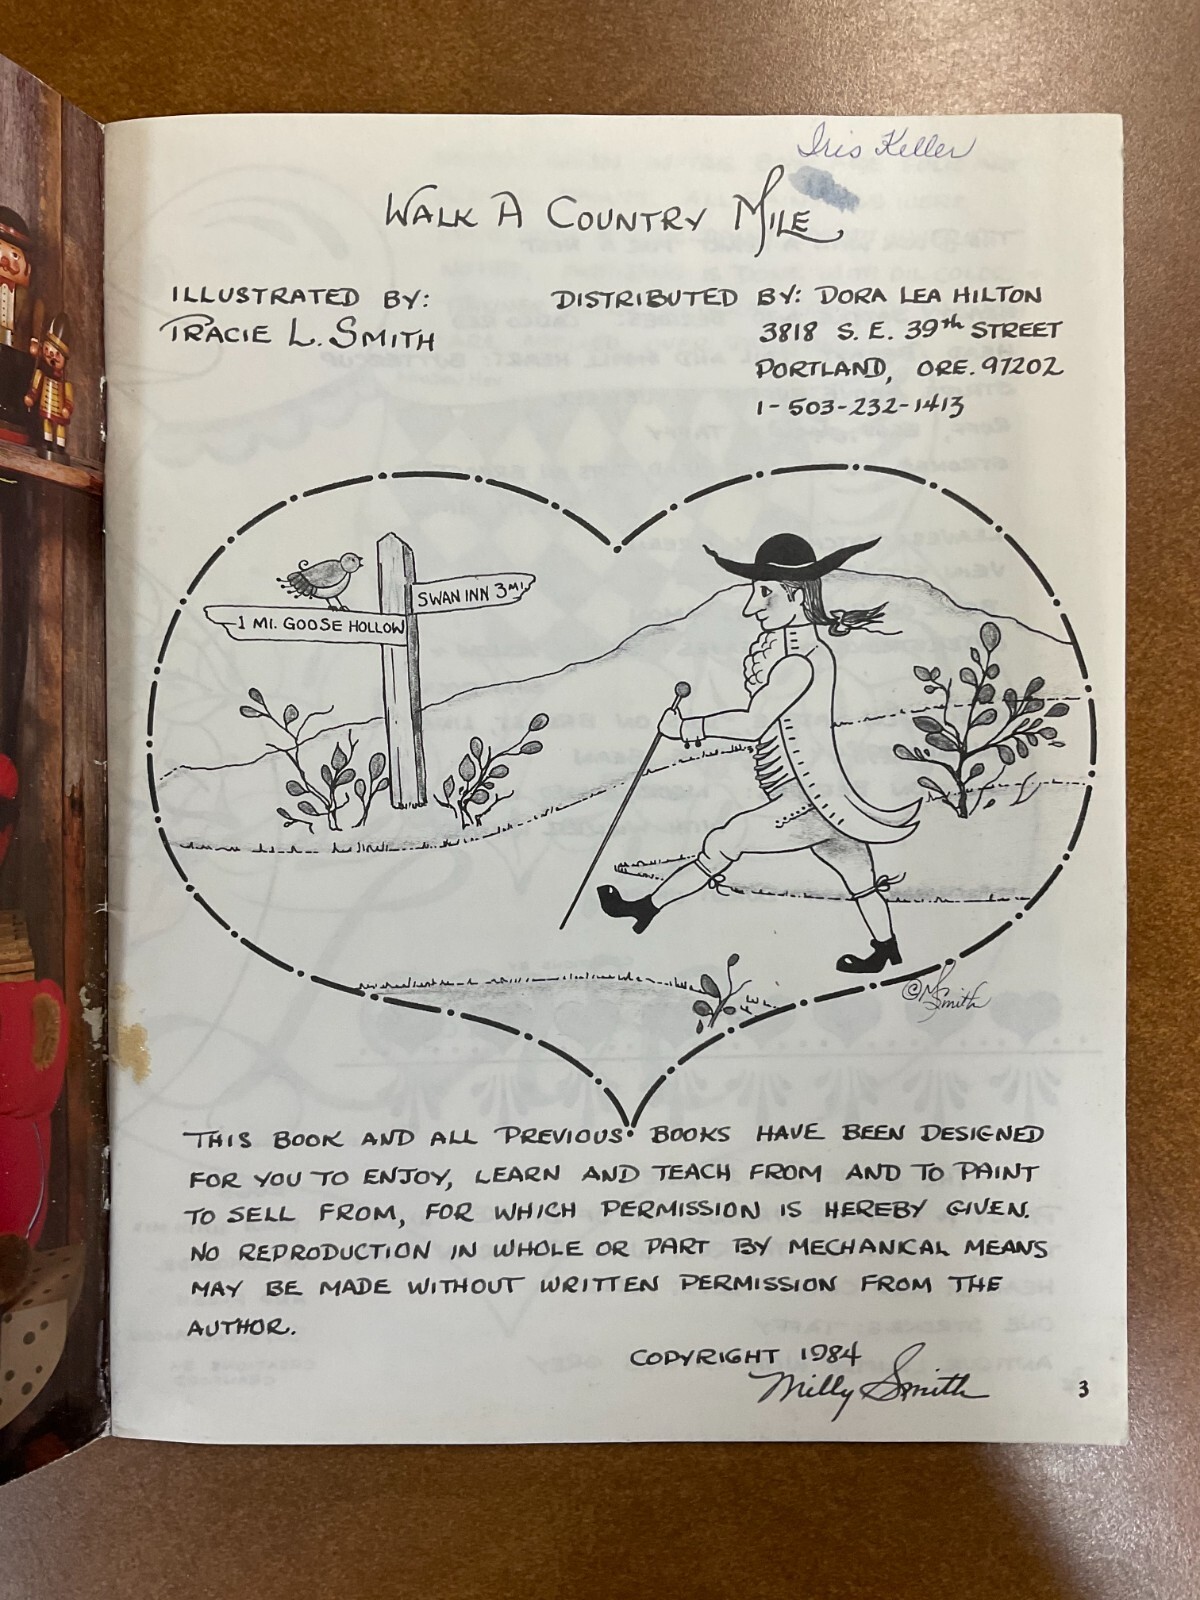 Iris Keller
WALK A COUNTRY MILE
ILLUSTRATED BY:
TRACIE L. SMITH
DISTRIBUTED BY: DORA LEA HILTON
3818 S.E. 39th STREET
PORTLAND, ORE. 97202
1-503-232-1413
SWAN INN 3 MI.
1 MI. GOOSE HOLLOW
© M Smith
THIS BOOK AND ALL PREVIOUS BOOKS HAVE BEEN DESIGNED
FOR YOU TO ENJOY, LEARN AND TEACH FROM AND TO PAINT
TO SELL FROM, FOR WHICH PERMISSION IS HEREBY GIVEN.
NO REPRODUCTION IN WHOLE OR PART BY MECHANICAL MEANS
MAY BE MADE WITHOUT WRITTEN PERMISSION FROM THE
AUTHOR.
COPYRIGHT 1984
Milly Smith
3